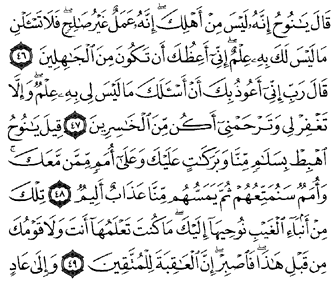 قَالَ يَٰنُوحُ إِنَّهُۥ لَيْسَ مِنْ أَهْلِكَ ۖ إِنَّهُۥ عَمَلٌ غَيْرُ صَٰلِحٍ ۖ فَلَا تَسْـَٔلْنِ
مَا لَيْسَ لَكَ بِهِۦ عِلْمٌ ۖ إِنِّىٓ أَعِظُكَ أَن تَكُونَ مِنَ ٱلْجَٰهِلِينَ ٤٦
قَالَ رَبِّ إِنِّىٓ أَعُوذُ بِكَ أَنْ أَسْـَٔلَكَ مَا لَيْسَ لِى بِهِۦ عِلْمٌ ۖ وَإِلَّا
تَغْفِرْ لِى وَتَرْحَمْنِىٓ أَكُن مِّنَ ٱلْخَٰسِرِينَ ٤٧ قِيلَ يَٰنُوحُ
ٱهْبِطْ بِسَلَٰمٍ مِّنَّا وَبَرَكَٰتٍ عَلَيْكَ وَعَلَىٰٓ أُمَمٍ مِّمَّن مَّعَكَ ۚ
وَأُمَمٌ سَنُمَتِّعُهُمْ ثُمَّ يَمَسُّهُم مِّنَّا عَذَابٌ أَلِيمٌ ٤٨ تِلْكَ
مِنْ أَنۢبَآءِ ٱلْغَيْبِ نُوحِيهَآ إِلَيْكَ ۖ مَا كُنتَ تَعْلَمُهَآ أَنتَ وَلَا قَوْمُكَ
مِن قَبْلِ هَٰذَا ۖ فَٱصْبِرْ ۖ إِنَّ ٱلْعَٰقِبَةَ لِلْمُتَّقِينَ ٤٩ وَإِلَىٰ عَادٍ